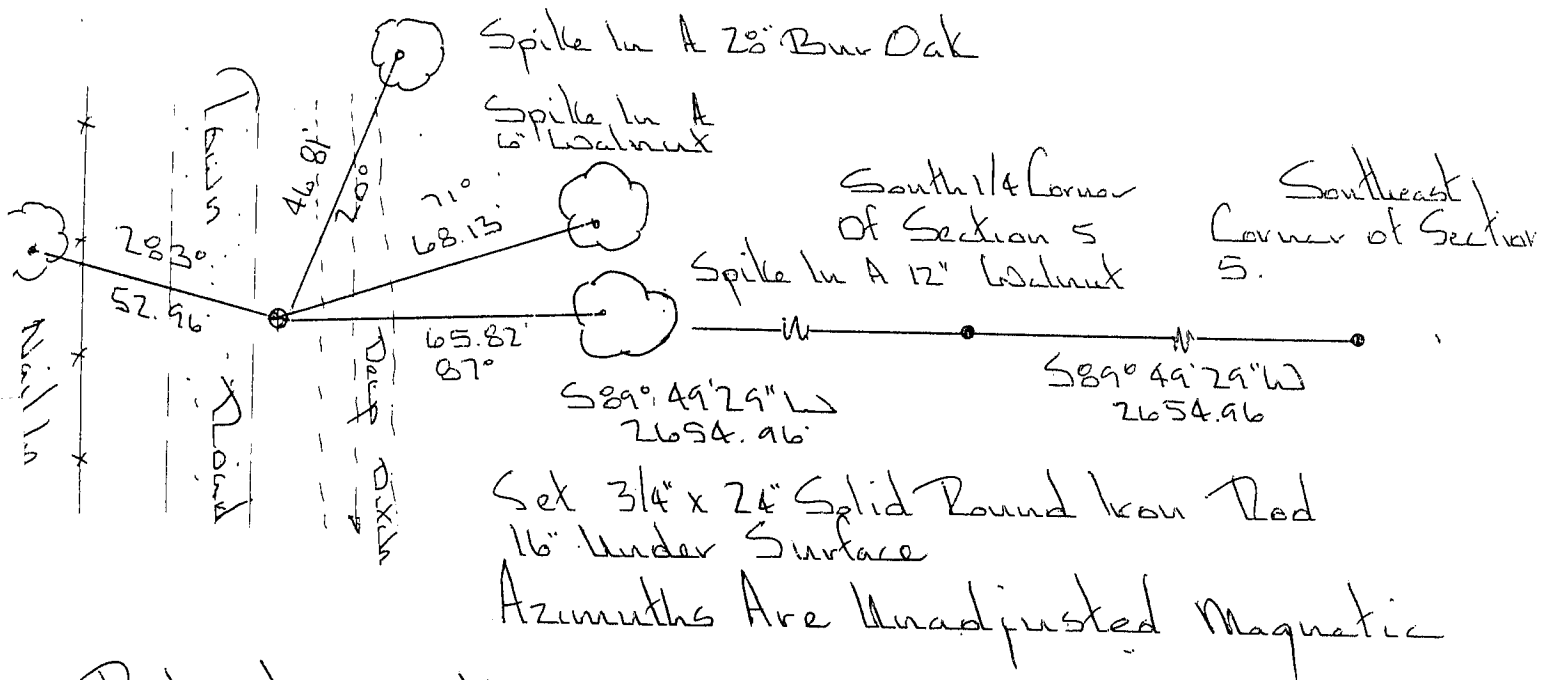 Spike In A 28" Bur Oak
Spike In A
6" Walnut
South 1/4 Corner
Of Section 5
Southeast
Corner of Section
5.
Spike In A 12" Walnut
Town
Road
Deep Ditch
Nail In
46.81'
20°
71°
68.13'
283°
52.96'
65.82'
87°
S89°49'29"W
2654.96'
S89°49'29"W
2654.96
Set 3/4" x 24" Solid Round Iron Rod
16" Under Surface
Azimuths Are Unadjusted Magnetic